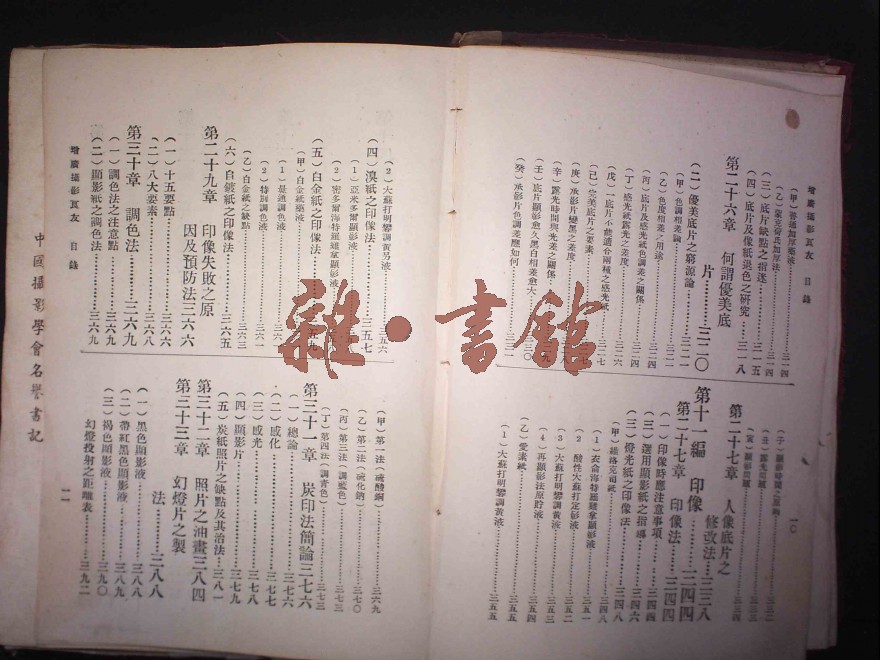 增廣攝影良友 目錄
一〇
(甲)普通加厚藥液……三一四
(乙)蒙克侖氏加厚法……三一四
(三)底片缺點之指迷……三一五
(四)底片及像紙退色之研究……三一八
第二十六章 何謂優美底
片……三二〇
(二)優美底片之窮源論……
(甲)色調相差論……
(乙)色度相差之用途……三二四
(丙)底片及感光紙色調之關係……三二四
(丁)感光紙露光之差度……三二六
(戊)一底片不能適合兩種之感光紙……三二七
(己)完美底片之要素……
(庚)承影片變黑之差度……
(辛)露光時間與光差之關係……
(壬)底片顯影愈久黑白相差愈大……
(癸)承影片色調差應如何……
(子)顯影時間之規則……三三二
(丑)露光寬緩……
(寅)顯影寬緩……三三四
第二十七章 人像底片之
修改法……三三八
第十一編 印像……三四四
第二十七章 印像法……三四四
(一)印像時應注意事項……三四四
(二)選用顯影紙之指導……三四六
(三)燈光紙之印像法……三四八
(甲)維洛克司紙……
(1)衣侖海特羅鏗拿顯影液……三四八
(2)酸性大蘇打定影液……三五二
(3)大蘇打明礬調黃液……三五三
(4)再顯影法原貯液……三五四
(乙)愛素紙……三五五
(1)大蘇打明礬調黃液……三五五
(2)大蘇打明礬調黃另液……三五六
(四)溴紙之印像法……三五七
(1)亞米多爾顯影液……
(2)密多爾海特羅鏗拿顯影液……
(五)白金紙之印像法……
(甲)白金紙藥液……
(1)最適調色液……
(2)特別調色液……三六一
(乙)白金紙之缺點……三六三
(六)自鍍紙之印像法……三六五
第二十九章 印像失敗之原
因及預防法三六六
(一)十五要點……三六六
(二)八大要素……三六八
第三十章 調色法……三六九
(一)調色法之注意點……三六九
(二)顯影紙之調色法……三六九
(甲)第一法(硫酸銅)……三六九
(乙)第二法(硫化鈉)……三七〇
(丙)第三法(調藍色)……三七三
(丁)第四法(調青色)……三七三
第三十一章 炭印法簡論三七六
(一)總論……三七六
(二)感化……三七七
(三)感光……三七八
(四)顯影片……三七九
(五)炭紙照片之缺點及其治法……三八一
第三十二章 照片之油畫三八四
第三十三章 幻燈片之製
法……三八八
(一)黑色顯影液……三八八
(二)帶紅黑色顯影液……三八九
(三)褐色顯影液……三九〇
幻燈投射之距離表……三九二
增廣攝影良友 目錄
一一
中國攝影學會名譽書記
雜·書館